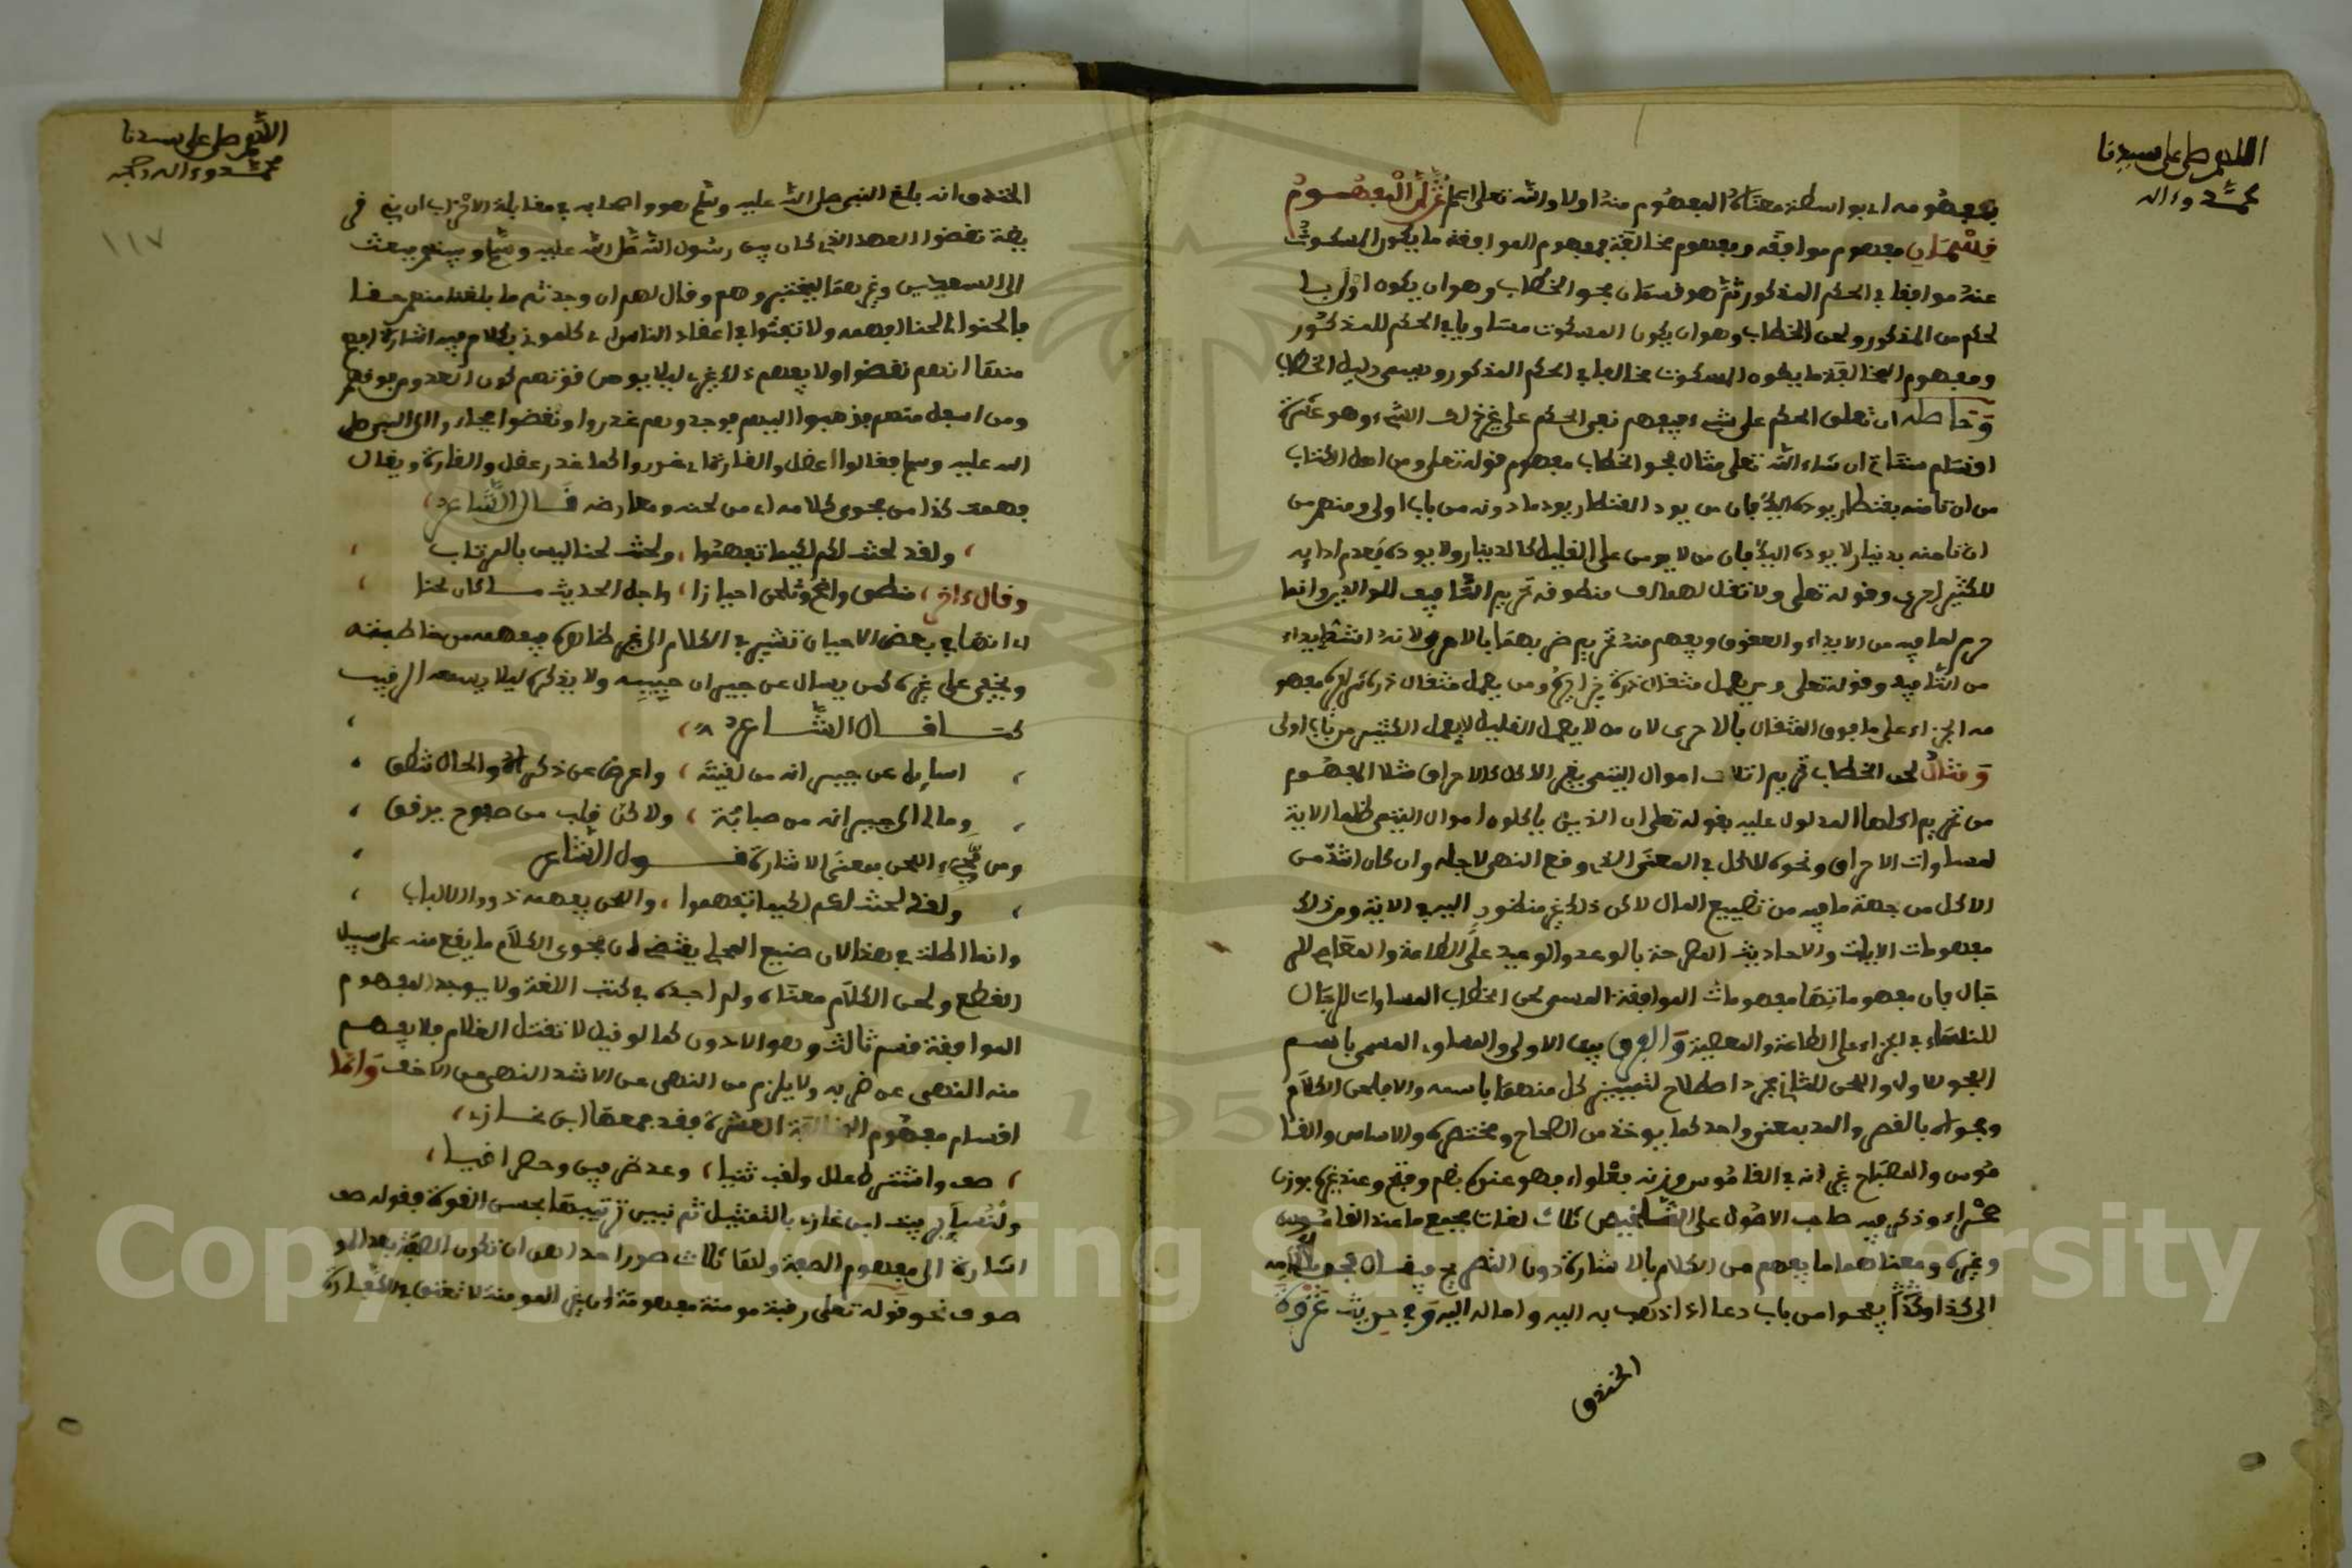 اللهم صل على سيدنا
محمد وءاله
بمفهومه اي بواسطة معناه المفهوم منه اولا والله تعلى اعلم ثم ان المفهوم
قسمان مفهوم موافقه ومفهوم مخالفة فمفهوم الموافقة ما يكون المسكوت
عنه موافقا في الحكم المذكور ثم هو قسمان فحو الخطاب وهو ان يكون اولى با
لحكم من المذكور ولحن الخطاب وهو ان يكون المسكوت مساويا في الحكم للمذكور
ومفهوم المخالفة ما يكون المسكوت مخالفا في الحكم المذكور ويسمى دليل الخطاب
وحاصله ان تعلق الحكم على شيء فيفهم نفي الحكم على غير ذلك الشيء وهو عشرة
اقسام ستاتي ان شاء الله تعلى مثال فحو الخطاب مفهوم قوله تعلى ومن اهل الكتاب
من ان تامنه بقنطار يوده اليك فان من يود القنطار يود ما دونه من باب اولى ومنهم من
ان تامنه بدينار لا يوده اليك فان من لا يومن على القليل كالدينار ولا يوده فعدم ادايه
للكثير احرى وقوله تعلى ولا تقل لهما اف منطوقه تحريم التافيف للوالدين وانما
حرم لما فيه من الايذاء والعقوق ويفهم منه تحريم ضربهما بالاحرى لانه اشد ايذاء
من التافيف وقوله تعلى ومن يعمل مثقال ذرة خيرا يره ومن يعمل مثقال ذرة شرا يره مفهو
مه الجزاء على ما فوق المثقال بالاحرى لان من لا يهمل القليل لا يهمل الكثير من باب اولى
ومثال لحن الخطاب تحريم اتلاف اموال اليتمى بغير الاكل كالاحراق مثلا المفهوم
من تحريم اكلها المدلول عليه بقوله تعلى ان الذين ياكلون اموال اليتمى ظلما الاية
لمساوات الاحراق ونحوه للاكل في المعنى الذي وقع النهي لاجله وان كان اشد من
الاكل من جهة ما فيه من تضييع المال لاكن ذلك غير منظور اليه في الاية ومن ذلك
مفهومات الايات والاحاديث المصرحة بالوعد والوعيد على الطاعة والمعاصي للر
جال فان مفهوماتها مفهومات الموافقة المسمى لحن الخطاب المساوات الرجال
للنساء في الجزاء على الطاعة والمعصية والفرق بين الاولى والمساوي المسمى باسم
الفحو للاول واللحن للثاني مجرد اصطلاح لتمييز كل منهما باسمه والا فلحن الكلام
وفحواه بالقصر والمد بمعنى واحد كما يوخذ من الصحاح ومختصره والاساس والقا
موس والمصباح غير انه في القاموس وزنه بغلواء فهو عنده بضم وفتح وعند غيره بوزن
حمراء وذكر فيه صاحب الاصول على التلخيص ثلاث لغات فجمع ما عند القاموس
وغيره ومعناهما ما يفهم من الكلام بالاشارة دون التصريح فيقال فحو كلامه
الى كذا وكذا يفحوا من باب دعا اذا ذهب به اليه واماله اليه وفي حديث غزوة
الخندق
اللهم صل على سيدنا
محمد وءاله وصحبه
١١٧
الخندق انه بلغ النبي صلى الله عليه وسلم وهو واصحابه في مقابلة الاحزاب ان بني قر
يظة نقضوا العهد الذي كان بين رسول الله صلى الله عليه وسلم وبينهم فبعث
الى السعدين وغيرهما ليختبروهم وقال لهم ان وجدتم ما بلغنا منهم حقا
فالحنوا لي لحنا افهمه ولا تفتوا في اعضاد الناس اي كلموني بكلام فيه اشارة افهم
منها انهم نقضوا ولا يفهم ذلك غيري ليلا يوهن قوتهم لكون العدو من فوقهم
ومن اسفل منهم فذهبوا اليهم فوجدوهم غدروا ونقضوا فجاءوا الى النبي صلى
الله عليه وسلم فقالوا عضل والقارة اي غدروا كما غدر عضل والقارة ويقال
فهمت كذا من فحوى كلامه اي من لحنه ومعارضه قال الشاعر
ولقد لحنت لكم لكيما تفهموا، ولحنت لحنا ليس بالمرتاب
وقال ءاخر، منطق واضح وتلحن احيانا، واحلى الحديث ما كان لحنا
اي انها في بعض الاحيان تشير في الكلام الى غير ظاهره فيفهمه من خاطبته
ويخفى على غيره كمن يسال عن جيران حبيبه ولا يذكره ليلا يسمعه الرقيب
كما قال الشاعر
اسايل عن جيرانه من لقيته، واعرض عن ذكراه والحال تنطق
وما لي الى جيرانه من صبابة، ولاكن قلب من صبوح يرقق
ومن مجيء اللحن بمعنى الاشارة قول الشاعر
ولقد لحنت لكم لكيما تفهموا، واللحن يفهمه ذووا الالباب
وانما اطلت في هذا لان صنيع المحلي يقتضي ان فحوى الكلام ما يفهم منه على سبيل
القطع ولحن الكلام معناه ولم اجده في كتب اللغة ولا يوجد لمفهوم
الموافقة قسم ثالث وهو الادون كما لو قيل لا تقتل الغلام فلا يفهم
منه النهي عن ضربه ولا يلزم من النهي عن الاشد النهي عن الاخف واما
اقسام مفهوم المخالفة العشرة فقد جمعها ابن غازي
صف واشترط علل ولقب ثنيا، وعد ظرفين وحصر اغيا
ولنتبع بيت ابن غازي بالتمثيل ثم نبين ترتيبها بحسب القوة فقوله صف
اشارة الى مفهوم الصفة ولها ثلاث صور احداهن ان تكون الصفة بعد المو
صوف نحو قوله تعلى رقبة مومنة مفهومه ان غير المومنة لا تعتق في الكفارة